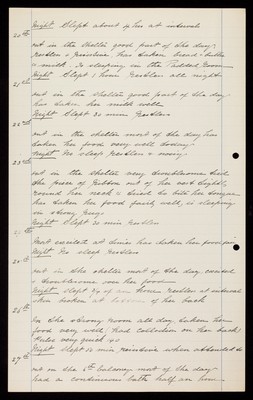 Night Slept about 4 hrs at interval
20th
out in the shelter good part of the day
restless & has taken bread & butter
& milk. Is sleeping in the Padded Room
Night Slept 1 hour Restless all night
21st
out in the shelter good part of the day
has taken her milk well
Night Slept 30 min Restless
22nd
out in the shelter most of the day has
taken her food very well today
Night No sleep Restless & noisy
23rd
out in the shelter very troublesome tied
the piece of Ribbon out of her vest tightly
round her neck & tried to bite her tongue
has taken her food fairly well, is sleeping
in strong rug
Night Slept 30 min Restless
Most excited at times has taken her food
Night No sleep Restless
out in the shelter most of the day excited
& troublesome over her food
Night Slept of an Hour Restless at interval
when of her back
In the strong room all day taken her
food very well, had on her back
Pulse very quick
Night Slept 30 min when attended to
27th
out on the 1st balcony most of the day
had a continuous bath half an hour